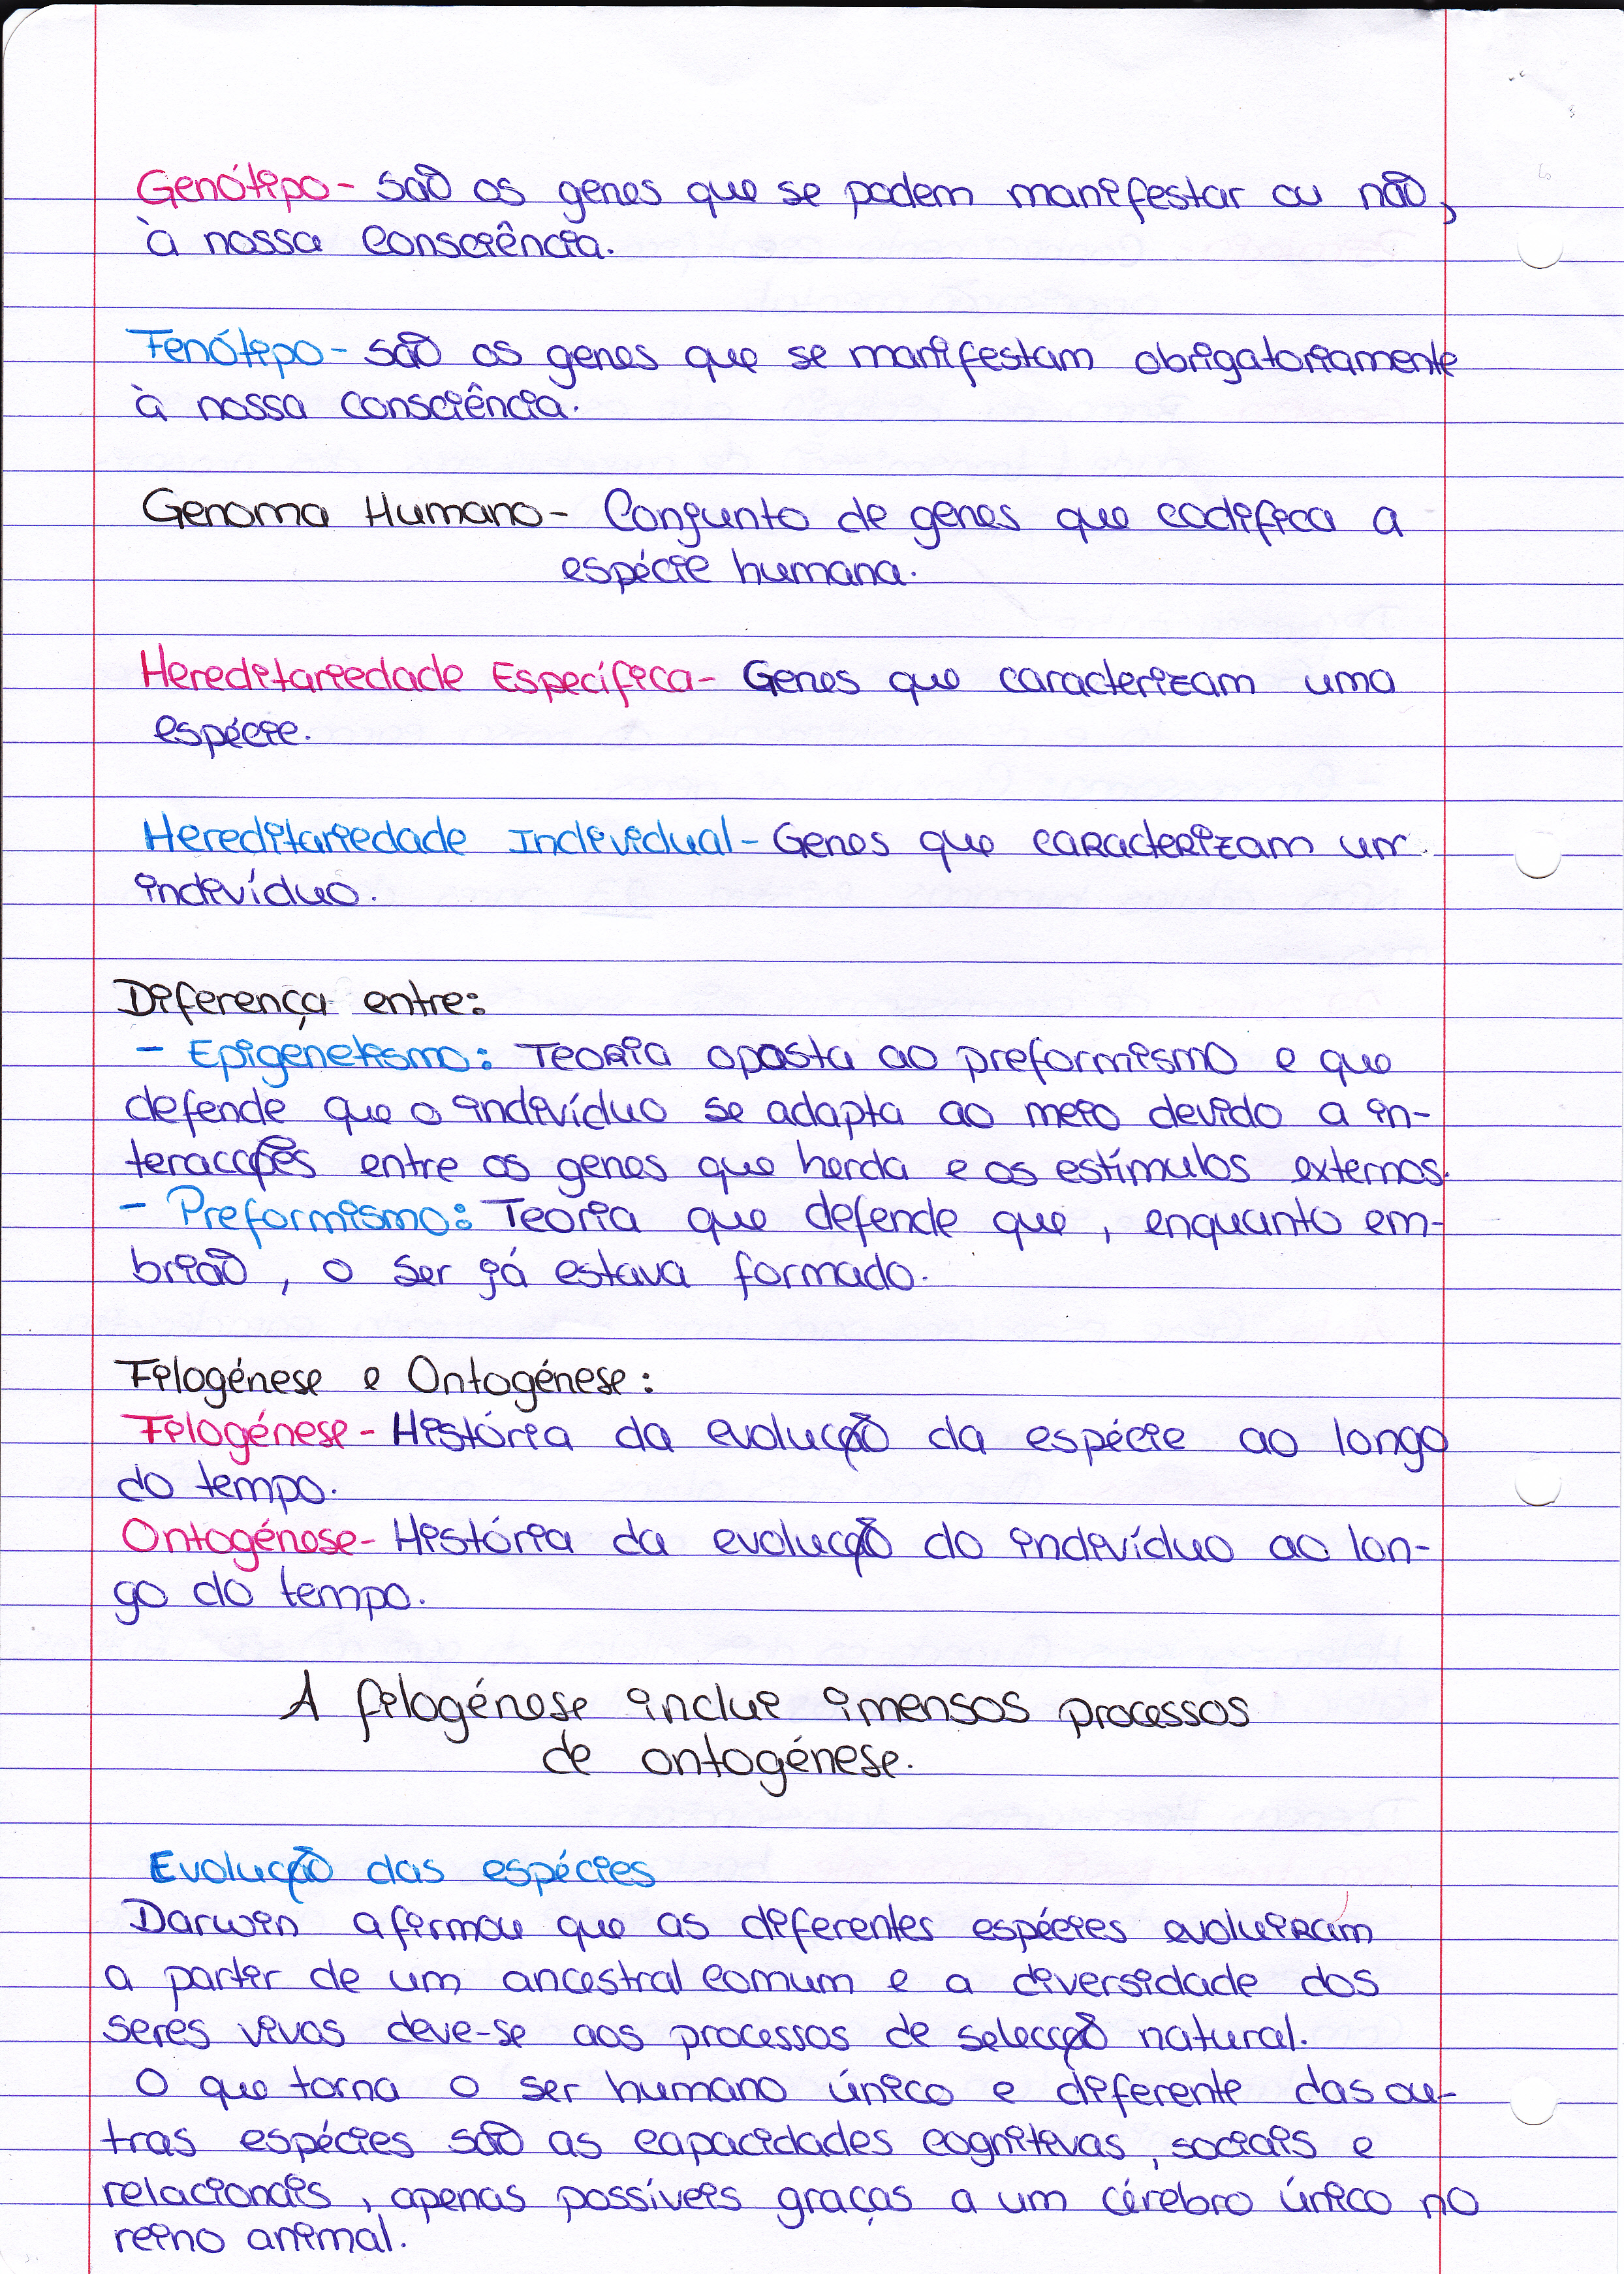 Genótipo- são os genes que se podem manifestar ou não,
à nossa consciência.
Fenótipo- são os genes que se manifestam obrigatoriamente
à nossa consciência.
Genoma Humano- Conjunto de genes que codifica a
espécie humana.
Hereditariedade Específica- Genes que caracterizam uma
espécie.
Hereditariedade Individual- Genes que caracterizam um
indivíduo.
Diferença entre:
- Epigenetismo: Teoria oposta ao preformismo e que
defende que o indivíduo se adapta ao meio devido a in-
teracções entre os genes que herda e os estímulos externos.
- Preformismo: Teoria que defende que, enquanto em-
brião, o ser já estava formado.
Filogénese e Ontogénese:
Filogénese- História da evolução da espécie ao longo
do tempo.
Ontogénese- História da evolução do indivíduo ao lon-
go do tempo.
A filogénese inclui imensos processos
de ontogénese.
Evolução das espécies
Darwin afirmou que as diferentes espécies evoluiram
a partir de um ancestral comum e a diversidade dos
seres vivos deve-se aos processos de selecção natural.
O que torna o ser humano único e diferente das ou-
tras espécies são as capacidades cognitivas, sociais e
relacionais, apenas possíveis graças a um cérebro único no
reino animal.